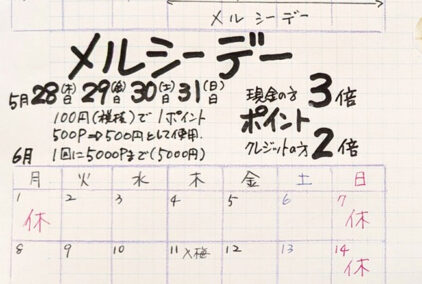 メルシーデー
メルシーデー
5月28日(木)29日(金)30日(土)31日(日)
100円(税抜)で1ポイント
500P⇒500円として使用.
1回に5000Pまで(5000円)
現金の方3倍
ポイント
クレジットの方2倍
6月
月 火 水 木 金 土 日
1 2 3 4 5 6 7
休 休
8 9 10 11入梅 12 13 14
休